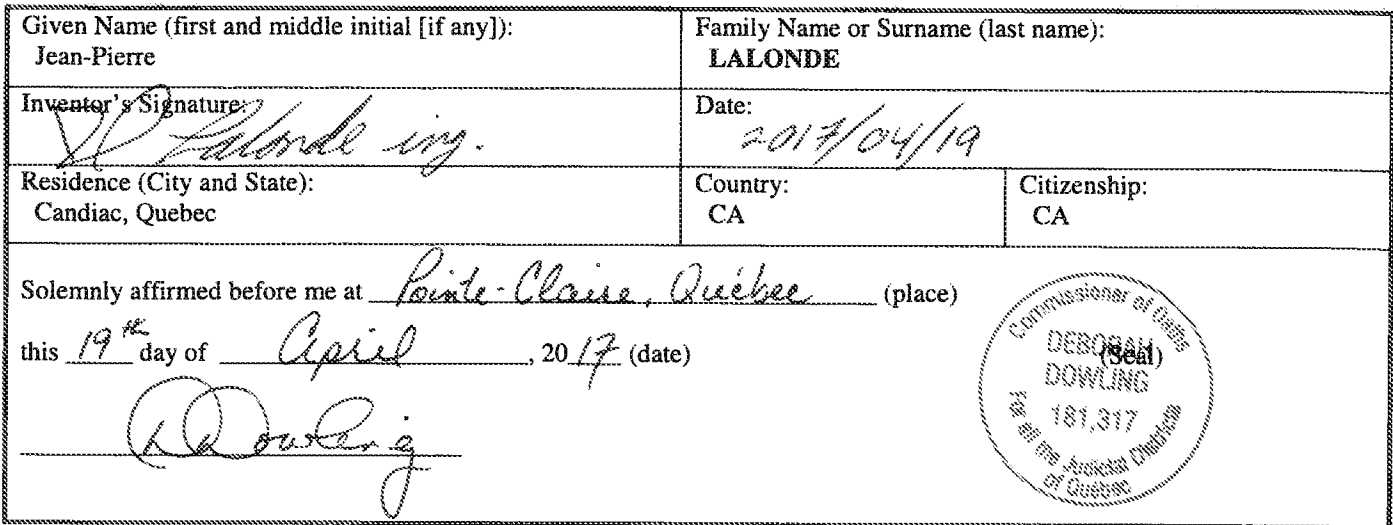 Given Name (first and middle initial [if any]):
Jean-Pierre
Family Name or Surname (last name):
LALONDE
Inventor's Signature:
Lalonde ing.
Date:
2017/04/19
Residence (City and State):
Candiac, Quebec
Country:
CA
Citizenship:
CA
Solemnly affirmed before me at Pointe-Claire, Québec (place)
this 19th day of April, 2017 (date)
(Seal)
Commissioner of Oaths
DEBORAH
DOWLING
181,317
For all the Judicial Districts
of Québec
Dowling